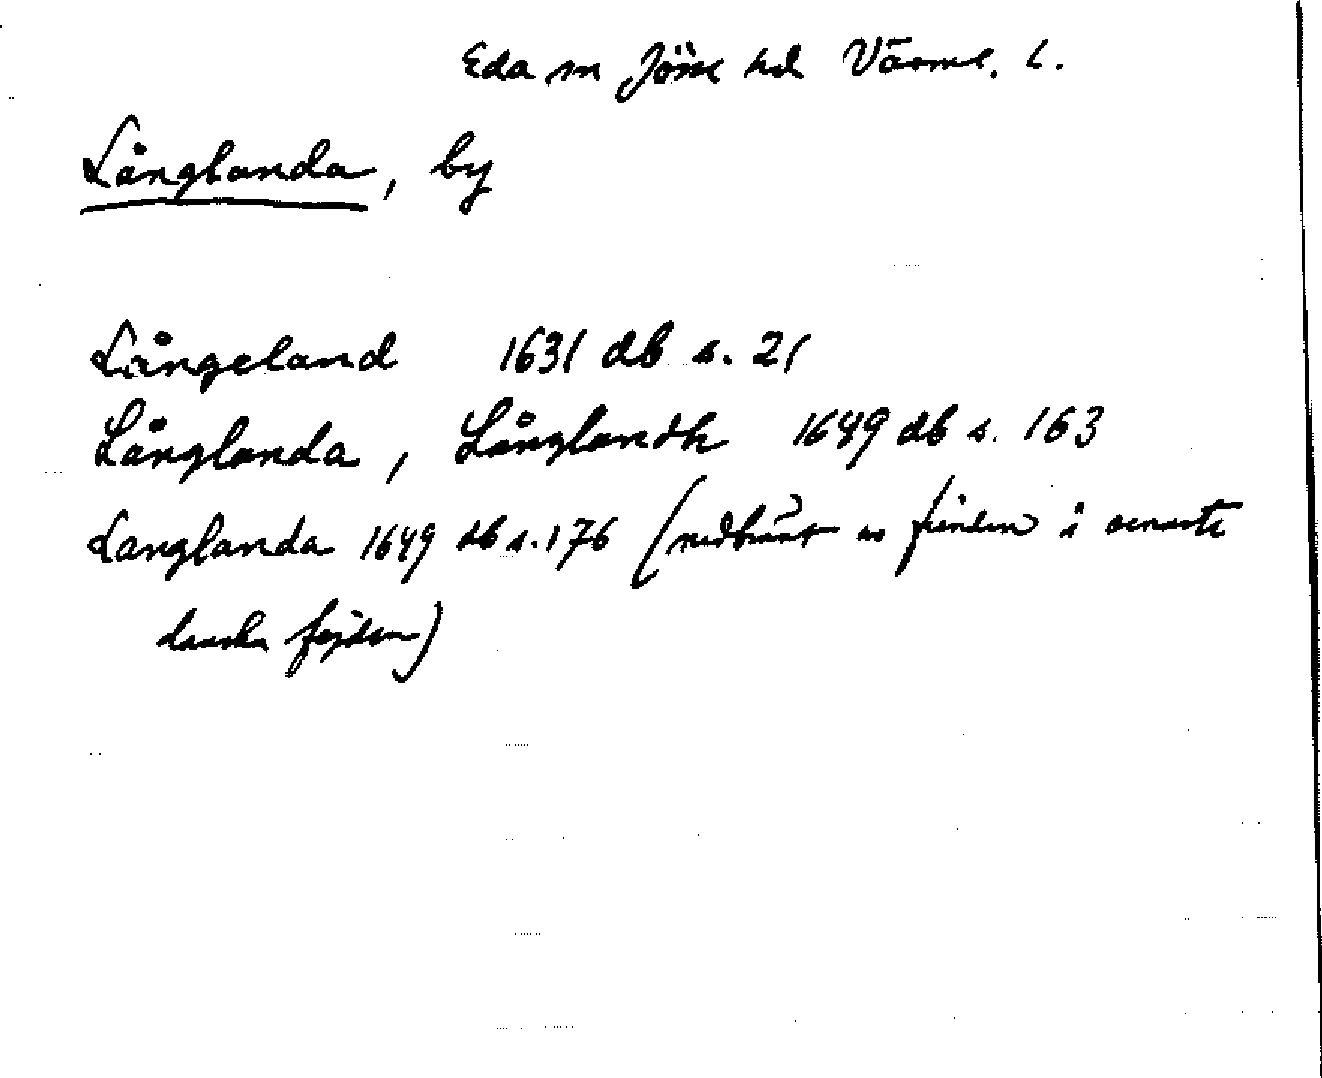 Eda sn Jösse hd Värml. l.
Långlanda, by
Långeland 1631 db s. 21
Långlanda, Långlandh 1649 db s. 163
Langlanda 1649 db s. 176 (nedbränt av fienden i senaste
danska fejden)